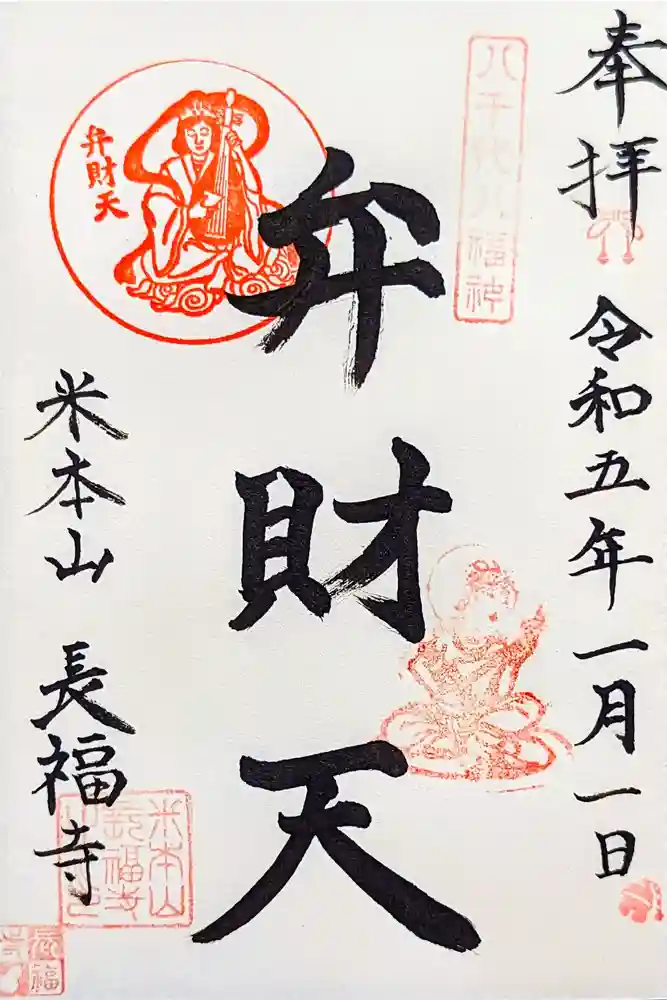 奉拝
令和五年一月一日
八千代八福神
弁財天
弁財天
米本山 長福寺
米本山
長福寺
長福
寺